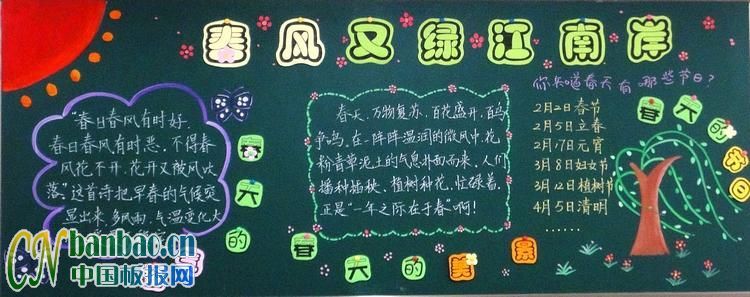 春风又绿江南岸
"春日春风有时好,
春日春风有时恶。不得春
风花不开,花开又被风吹
落。"这首诗把早春的气候突
显出来,多风雨,气温变化大
春天的
春天,万物复苏,百花盛开,百鸟
争鸣。在一阵阵湿润的微风中,花
粉青草泥土的气息扑面而来,人们
播种插秧、植树种花,忙碌着,
正是"一年之际在于春"啊!
春天的美景
你知道春天有哪些节日?
2月2日春节
2月5日立春
2月17日元宵
3月8日妇女节
3月12日植树节
4月5日清明
……
春天的节日
CN banbao.cn
中国板报网